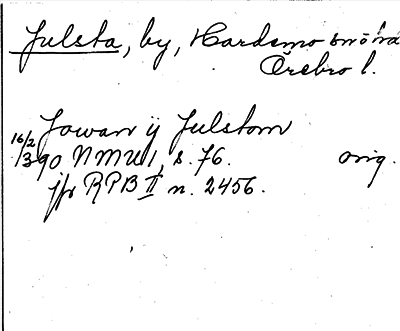 Julsta, by, Hardemo snöhä
Örebro l.
Jowan ij Julstom
16/2
1390 NMU 1, s. 76. orig.
jfr RPB II n. 2456.